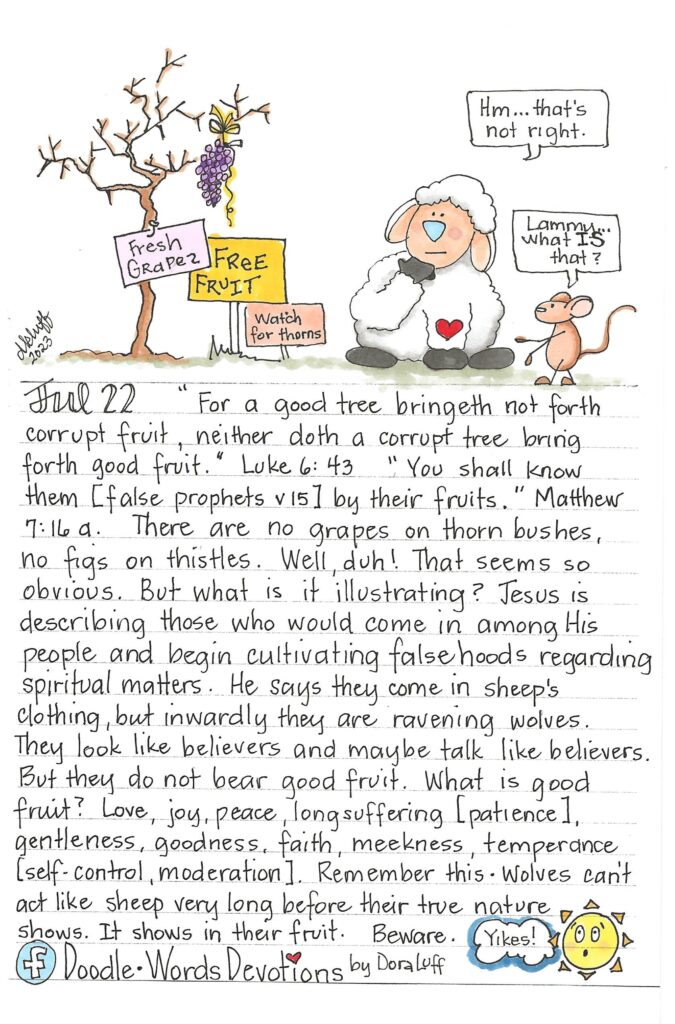 Hm... that's
not right.
Lammy...
what IS
that?
Fresh
Grapes
FRee
FRUIT
Watch
for thorns
DSLuff
2023
Jul 22 "For a good tree bringeth not forth
corrupt fruit, neither doth a corrupt tree bring
forth good fruit." Luke 6:43 "You shall know
them [false prophets v 15] by their fruits." Matthew
7:16 a. There are no grapes on thorn bushes,
no figs on thistles. Well, duh! That seems so
obvious. But what is it illustrating? Jesus is
describing those who would come in among His
people and begin cultivating falsehoods regarding
spiritual matters. He says they come in sheep's
clothing, but inwardly they are ravening wolves.
They look like believers and maybe talk like believers.
But they do not bear good fruit. What is good
fruit? Love, joy, peace, longsuffering [patience],
gentleness, goodness, faith, meekness, temperance
[self-control, moderation]. Remember this. Wolves can't
act like sheep very long before their true nature
shows. It shows in their fruit. Beware. Yikes!
f Doodle•Words Devotions by Dora Luff